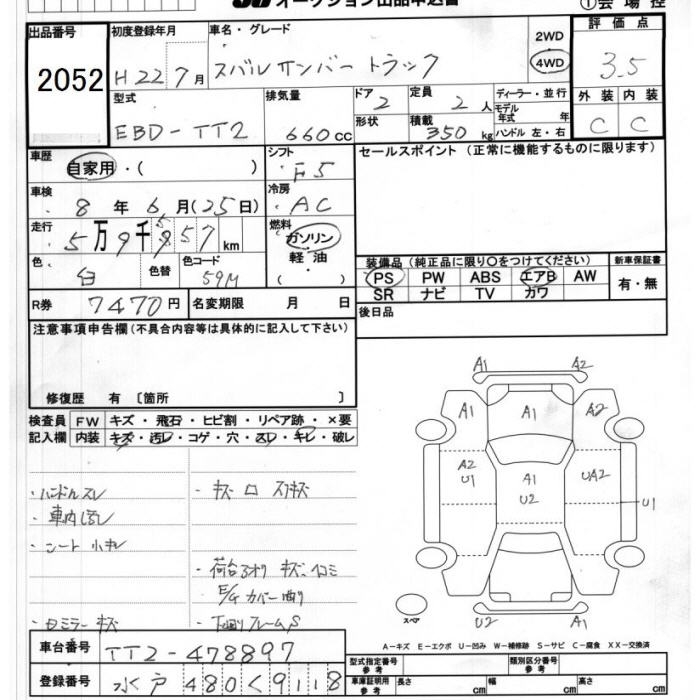 オークション出品申込書
①会場控
出品番号
2052
初度登録年月
H22 7月
車名・グレード
スバル サンバー トラック
2WD
4WD
評価点
3.5
型式
EBD-TT2
排気量
660cc
ドア
2
形状
定員
2人
積載
350kg
ディーラー・並行
モデル年式 年
ハンドル 左・右
外装
内装
C
C
車歴
自家用・( )
シフト
F5
セールスポイント(正常に機能するものに限ります)
車検
8年6月(25日)
冷房
AC
走行
km
燃料
ガソリン
軽油
( )
色
白
色替
色コード
59M
装備品(純正品に限り○をつけてください)
PS PW ABS エアB AW
SR ナビ TV カワ
新車保証書
有・無
R券
7470円
名変期限 月 日
後日品
注意事項申告欄(不具合内容等は具体的に記入して下さい)
修復歴 有 〔箇所 〕
検査員記入欄
FW キズ・飛石・ヒビ割・リペア跡・×要
内装 キズ・汚レ・コゲ・穴・スレ・キレ・破レ
・ハンドルスレ
・車内ヨゴレ
・シート小キレ
・Bミラーキズ
・キズ
・荷台アオリ キズ、凹ミ
E/Gカバー曲り
・下廻りフレームS
A1 A2
A1 A1 A2
A2 U1
A1 U2
UA2
U1
U2 A1
スペア
A-キズ E-エクボ U-凹み W-補修跡 S-サビ C-腐食 XX-交換済
車台番号
TT2-478897
登録番号
水戸 480 く 9118
型式指定番号 参考
類別区分番号 参考
車庫証明用 参考
長さ cm 幅 cm 高さ cm